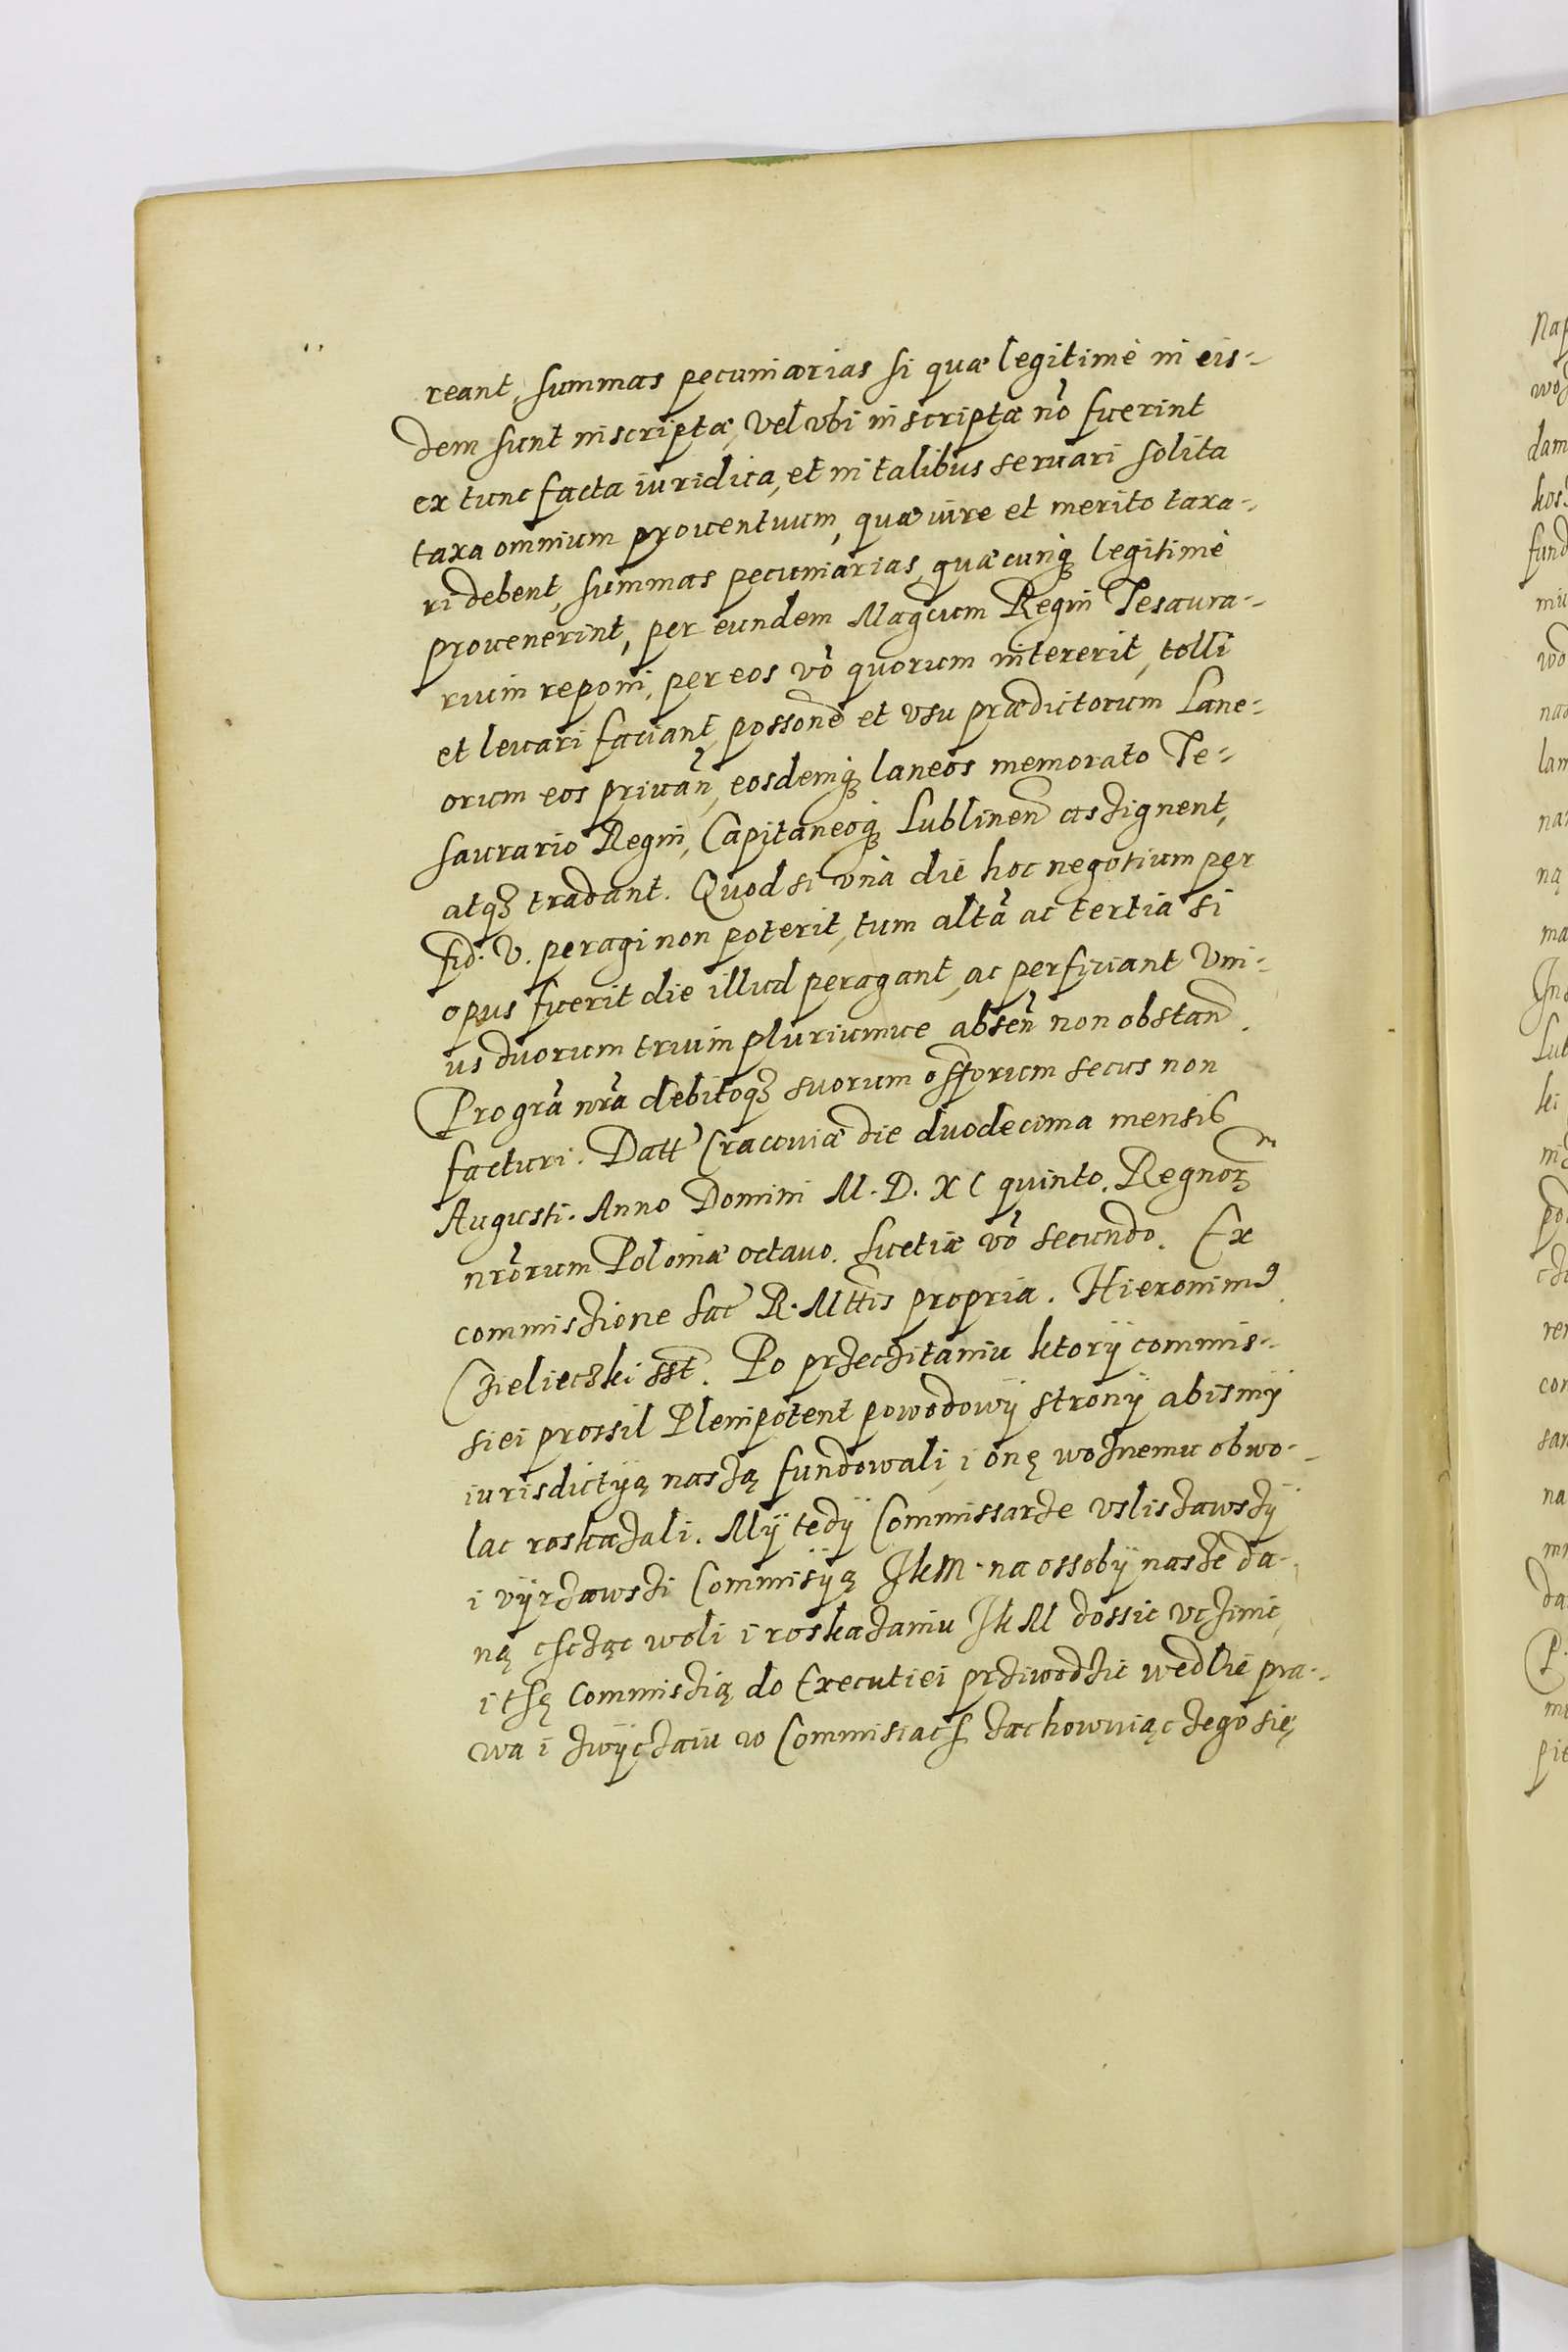 reant, summas pecuniarias si quæ legitimè in eis-
dem sunt inscriptæ, vel vbi inscriptæ nō fuerint
ex tunc facta iuridica, et in talibus seruari solita
taxa omnium prouentuum, quæ iure et merito taxa-
ri debent, summas pecuniarias, quæcunq̨ legitimè
prouenerint, per eundem Magcum Regni Tesaura-
rium reponi, per eos vō quorum intererit, tolli
et leuari faciant, possone et vsu prædictorum Lane-
orum eos priuan̄, eosdemq̨ laneos memorato Te-
saurario Regni, Capitaneoq̨ Lublinen aszignent,
atqȝ tradant. Quod si vnà die hoc negotium per
fid. V. peragi non poterit, tum altā ac tertia si
opus fuerit die illud peragant, ac perficiant Vni-
us duorum trium pluriumue absen̄ non obstan.
Pro grā nrā debitoqȝ suorum offorum secus non
facturi. Datt Cracouiæ die duodecima mensis
Augusti. Anno Domini M. D. XC quinto. Regnorȝ
nrōrum Poloniæ octauo. Suetiæ vō secundo. Ex
commiszione Sac R. Mttis propria. Hieronimꝰ
Czielieczki sst. Po przeczitaniu ktorÿ commis-
siei prossil Plenipotent powodowÿ stronÿ abismÿ
iurisdictÿą naszą fundowali, i onę woznemu obwo-
lac roskazali. Mÿ tedÿ Commissarze vsliszawszÿ
i vÿrzawszi Commisÿą JkM. na ossobÿ nasze da-
ną chcząc woli i roskazaniu JkM dossic vczinic,
i thę Commiszią do Executiei prziwodzic wedlie pra-
wa i zwÿczaiu w Commisiach zachowuiączego się,
Nap
dam
fund
miu
wo
lam
na
ną
ma
Lub
ki
con
na
da
P.
pie